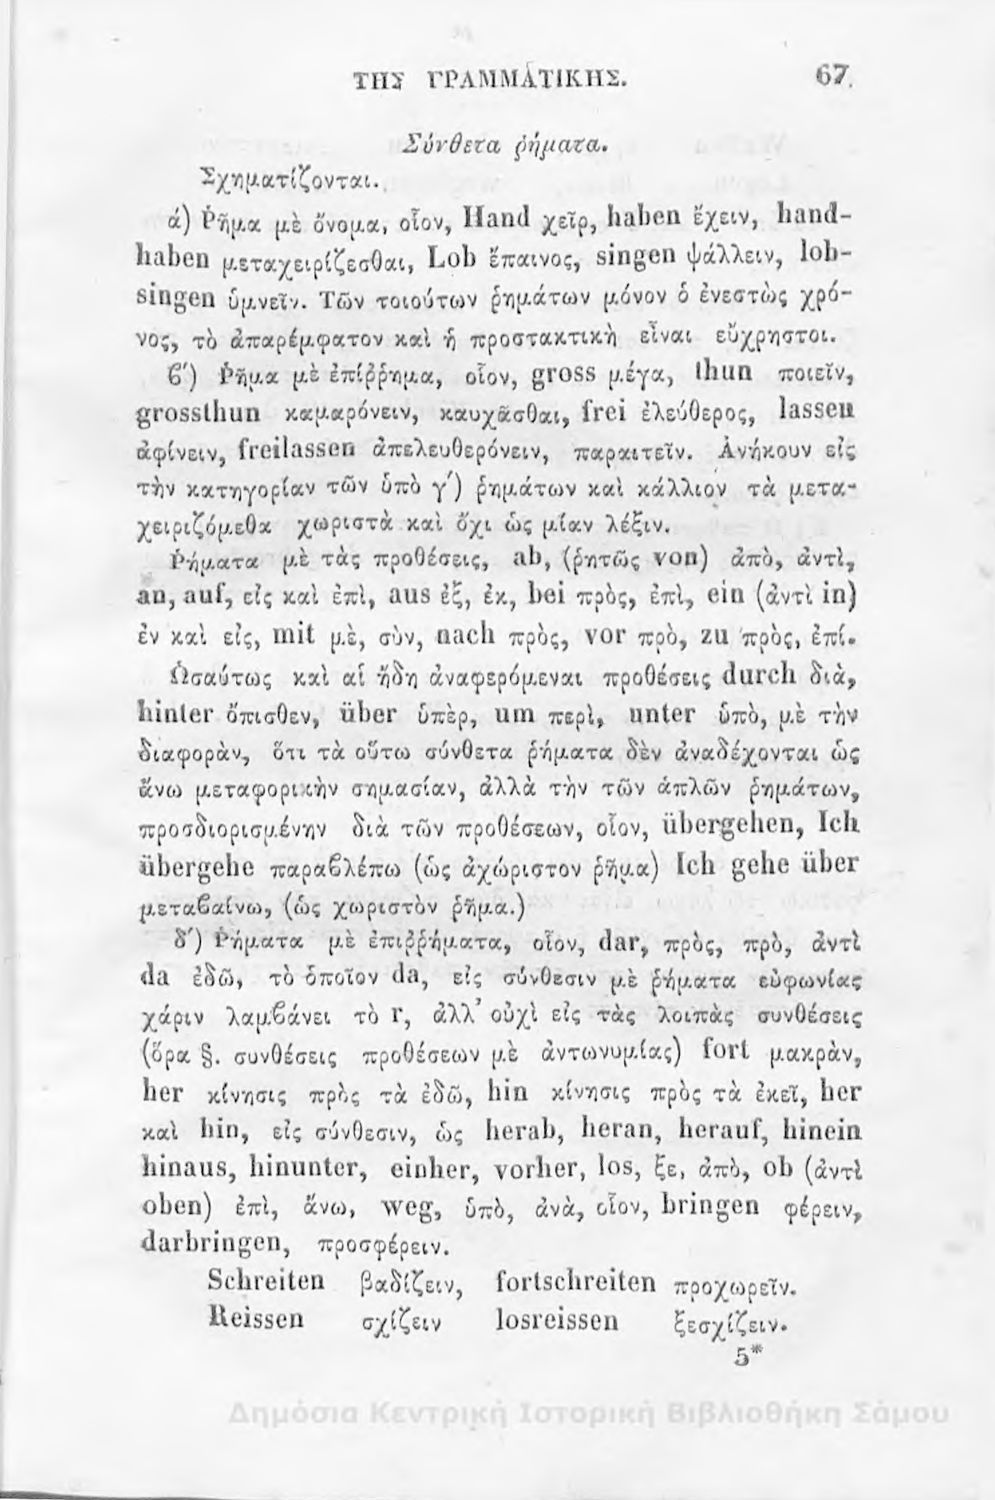 ΤΗΣ ΓΡΑΜΜΑΤΙΚΗΣ. 67.
Σύνθετα ῥήματα.
Σχηματίζονται.
ά) Ῥῆμα μὲ ὄνομα, οἷον, Hand χεῖρ, haben ἔχειν, hand-
haben μεταχειρίζεσθαι, Lob ἔπαινος, singen ψάλλειν, lob-
singen ὑμνεῖν. Τῶν τοιούτων ῥημάτων μόνον ὁ ἐνεστὼς χρό-
νος, τὸ ἀπαρέμφατον καὶ ἡ προστακτικὴ εἶναι εὔχρηστοι.
ϐ') Ῥῆμα μὲ ἐπίῤῥημα, οἷον, gross μέγα, thun ποιεῖν,
grossthun καμαρόνειν, καυχᾶσθαι, frei ἐλεύθερος, lassen
ἀφίνειν, freilassen ἀπελευθερόνειν, παραιτεῖν. Ἀνήκουν εἰς
τὴν κατηγορίαν τῶν ὑπὸ γ') ῥημάτων καὶ κάλλιον τὰ μετα-
χειριζόμεθα χωριστὰ καὶ ὄχι ὡς μίαν λέξιν.
Ῥήματα μὲ τὰς προθέσεις, ab, (ῥητῶς von) ἀπὸ, ἀντὶ,
an, auf, εἰς καὶ ἐπὶ, aus ἐξ, ἐκ, bei πρὸς, ἐπὶ, ein (ἀντὶ in)
ἐν καὶ εἰς, mit μὲ, σὺν, nach πρὸς, vor πρὸ, zu πρὸς, ἐπί.
Ὡσαύτως καὶ αἱ ἤδη ἀναφερόμεναι προθέσεις durch διὰ,
hinter ὄπισθεν, über ὑπὲρ, um περὶ, unter ὑπὸ, μὲ τὴν
διαφορὰν, ὅτι τὰ οὕτω σύνθετα ῥήματα δὲν ἀναδέχονται ὡς
ἄνω μεταφορικὴν σημασίαν, ἀλλὰ τὴν τῶν ἁπλῶν ῥημάτων,
προσδιορισμένην διὰ τῶν προθέσεων, οἷον, übergehen, Ich
übergehe παραϐλέπω (ὡς ἀχώριστον ῥῆμα) Ich gehe über
μεταϐαίνω, (ὡς χωριστὸν ῥῆμα.)
δ') Ῥήματα μὲ ἐπιῤῥήματα, οἷον, dar, πρὸς, πρὸ, ἀντὶ
da ἐδῶ, τὸ ὁποῖον da, εἰς σύνθεσιν μὲ ῥήματα εὐφωνίας
χάριν λαμϐάνει τὸ r, ἀλλ' οὐχὶ εἰς τὰς λοιπὰς συνθέσεις
(ὅρα §. συνθέσεις προθέσεων μὲ ἀντωνυμίας) fort μακρὰν,
her κίνησις πρὸς τὰ ἐδῶ, hin κίνησις πρὸς τὰ ἐκεῖ, her
καὶ hin, εἰς σύνθεσιν, ὡς herab, heran, herauf, hinein
hinaus, hinunter, einher, vorher, los, ξε, ἀπὸ, ob (ἀντὶ
oben) ἐπὶ, ἄνω, weg, ὑπὸ, ἀνὰ, οἷον, bringen φέρειν,
darbringen, προσφέρειν.
Schreiten βαδίζειν, fortschreiten προχωρεῖν.
Reissen σχίζειν losreissen ξεσχίζειν.
5*
Δημόσια Κεντρική Ιστορική Βιβλιοθήκη Σάμου